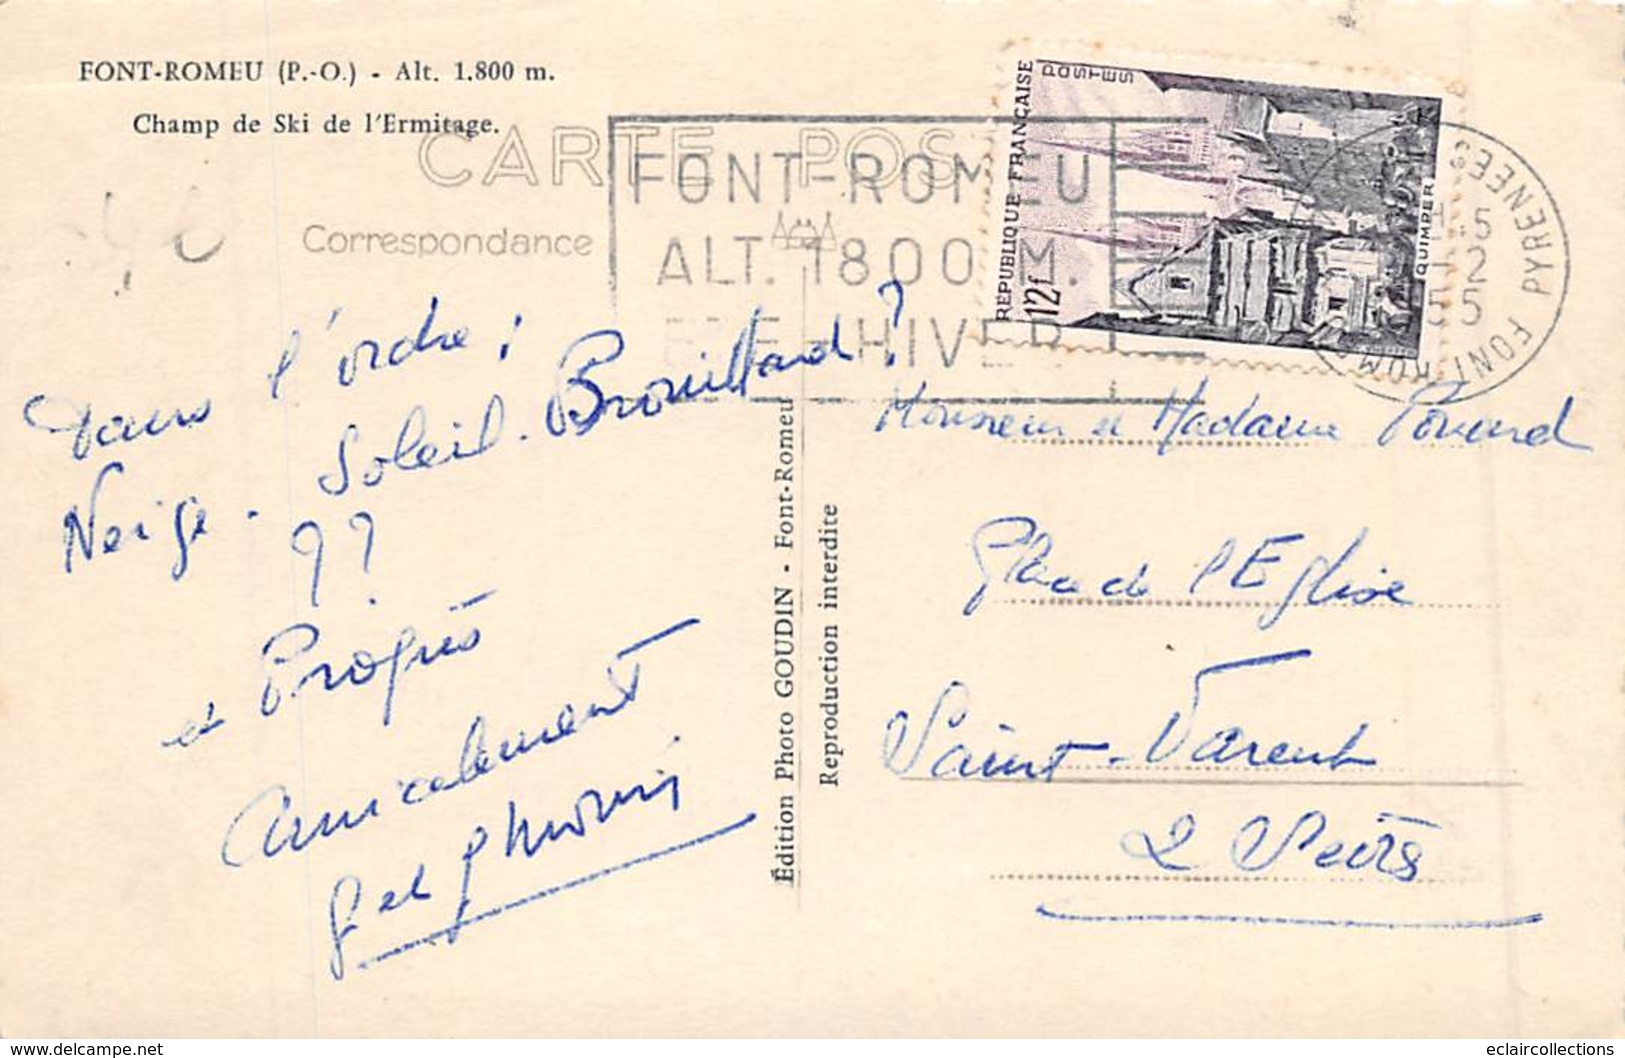 FONT-ROMEU (P.-O.) - Alt. 1.800 m.
Champ de Ski de l'Ermitage.
CARTE POS
Correspondance
FONT-ROMEU
ALT. 1800 M.
HIVER
REPUBLIQUE FRANÇAISE
POSTES
12f
QUIMPER
PYRENEES
FONT ROM
45
2
55
Dans l'ordre :
Neige. Soleil. Brouillard ?
??
et Progrès
Amicalement
Édition Photo GOUDIN - Font-Romeu
Reproduction interdite
Monsieur et Madame
Place de l'Eglise
Saint-Varent
2 Sèvres
www.delcampe.net
eclaircollections